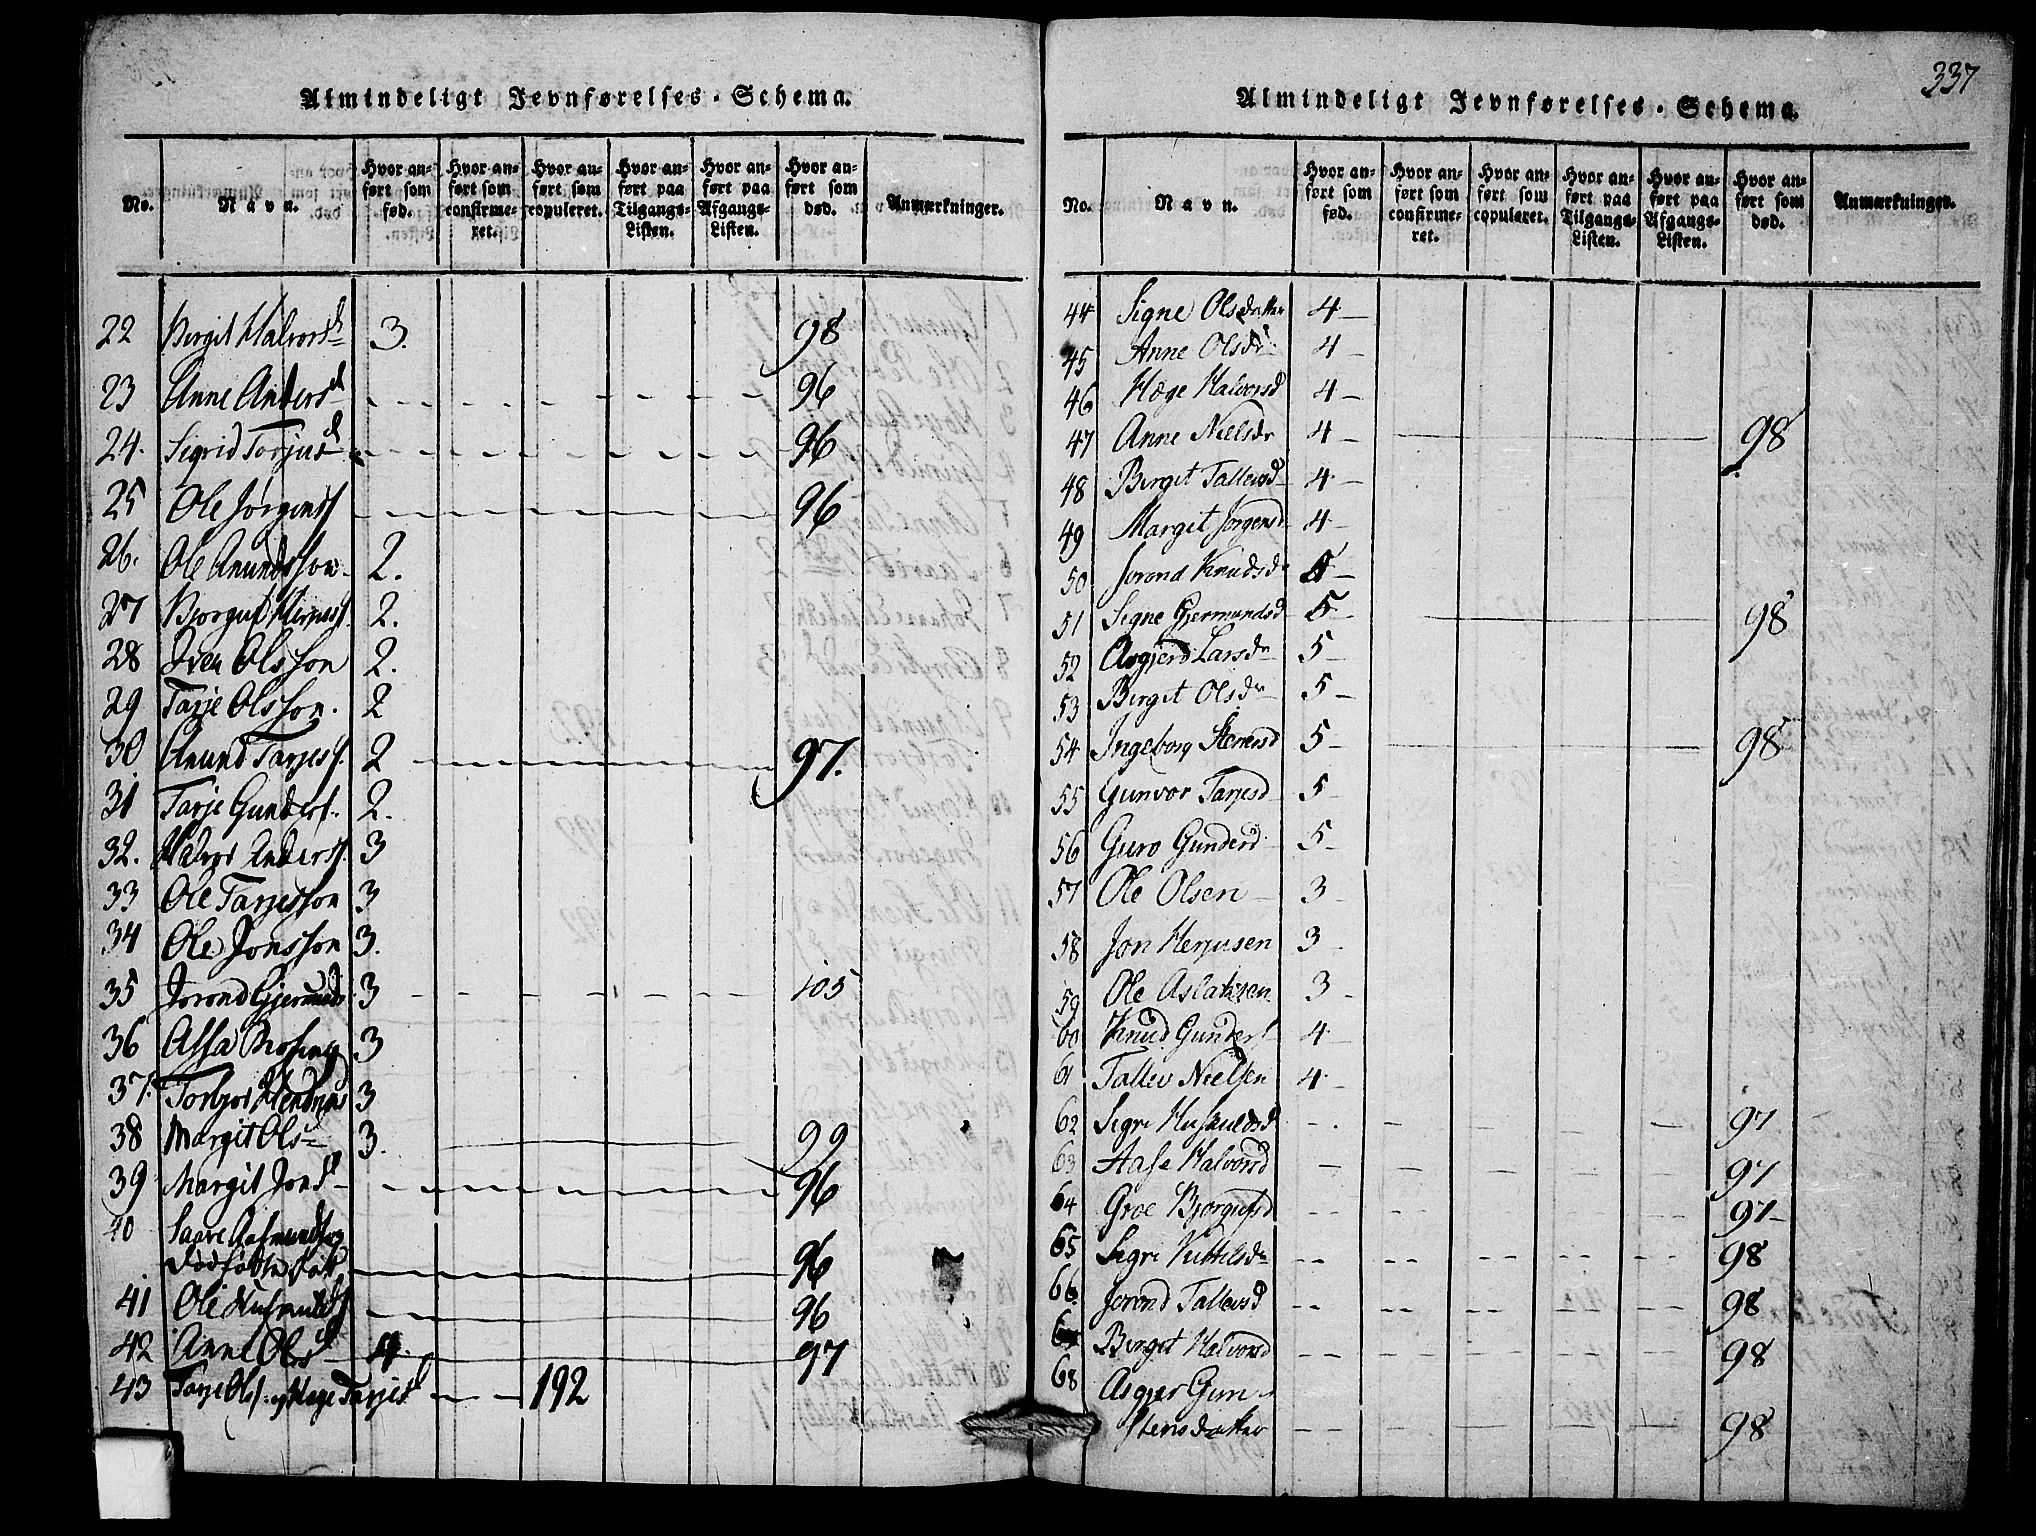 Almindeligt Jevnførelses-Schema.
No. Navn. Hvor anført som fød. Hvor anført som confirmeret. Hvor anført som copuleret. Hvor anført paa Tilgangs-Listen. Hvor anført paa Afgangs-Listen. Hvor anført som død. Anmærkninger.
22 Birgit Halvorsd 3. 98
23 Anne Andersd 96
24. Sigrid Torjusd 96
25 Ole Jørgenss 96
26. Ole Anundsson 2.
27 Bjorguf 2.
28 Iven Olsson 2.
29 Tarje Olsson. 2
30 Anund Tarjess. 2 97.
31 Tarje Gunders. 2.
32. Halvor Anderss. 3
33 Ole Tarjesson 3
34 Ole Jonsson 3.
35 Jorond Gjermunds 3 105
36 Assa 3
37. Torbjor 3
38 Margit Ols 3. 99
39 Margit Jonsd 96
40 Aasmundsson
96
41 Ole 96
42 Anne Olsd 4. 97
43 Tarje Ols. og Hæge Tarjesd 192
337
Almindeligt Jevnførelses-Schema.
No. Navn. Hvor anført som fød. Hvor anført som confirmeret. Hvor anført som copuleret. Hvor anført paa Tilgangs-Listen. Hvor anført paa Afgangs-Listen. Hvor anført som død. Anmærkninger.
44 Signe Olsdatter 4
45 Anne Olsdr 4
46 Hæge Halvorsd 4
47 Anne Nielsdr 4 98
48 Birgit Tallevsd 4
49 Margit Jorgensd 4
50 Jorond Knudsd 5
51 Signe Gjermundsd 5 98
52 Asgjerd Larsdr 5
53 Birgit Olsdr 5
54 Ingeborg 5 98
55 Gunvor Tarjesd 5
56 Guro Gunderd 5
57 Ole Olsen 3
58 Jon Herjusen 3
59 Ole Aslaksen 3
60 Knud Gunders 4
61 Tallev Nielsen 4
62 Sigri Huskuldsd 97
63 Aase Halvorsd 97
64 Groe Bjorgufsd 97
65 Sigri Kittilsdr 98
66 Jorond Tallevsd 98
Birgit Halvorsd 98
68 Asgjer Gun
stensdatter 98